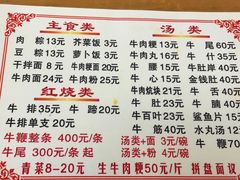 主食类
肉粽13元 芥菜饭3元
豆粽13元 萝卜饭3元
干拌面8元 牛肉粳面20元
牛肉面24元 牛肉粉25元
红烧类
牛排35元 牛蹄20元
牛鞭整条400元/条
牛尾300元/条起
汤类
牛肉粳13元 牛尾60元
牛肉丸16元 牛什35元
牛腰35元 牛肚岸40元
牛心14元 金钱肚40元
牛肉羹16元 牛杂21元
牛肚21元 牛腩40元
牛百叶23元 鲨鱼片15元
牛筋40元 水丸汤12元
汤类+面3元/碗 牛鞭70
汤类+粉4元/碗
青菜8-20元 生牛肉粳50元/斤 拼盘面议